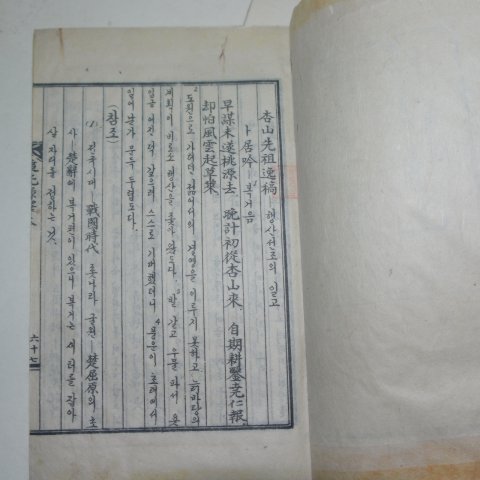 杏山先祖逸稿 — 행산선조의 일고
卜居吟 — 복거음
早謀未遂桃源去 晩計初從杏山來 自期耕鑿堯仁報
却怕風雲起草萊
도원으로 가려던 젊어서의 경영을 이루지 못하고 늙마당의
계획이 비로소 행산을 좇아 왔도다 밭 갈고 우물 파서 요
임금 어진 덕 갚으려 스스로 기약했더니 풍운이 초래에서
일어날가 문득 두렵도다.
(참조)
(1) 전국시대 — 戰國時代 초나라 굴원 — 楚屈原의 초
사 — 楚辭에 복거편이 있으니 복거는 세 터를 잡아
살 자리를 정하는 것.
六十七